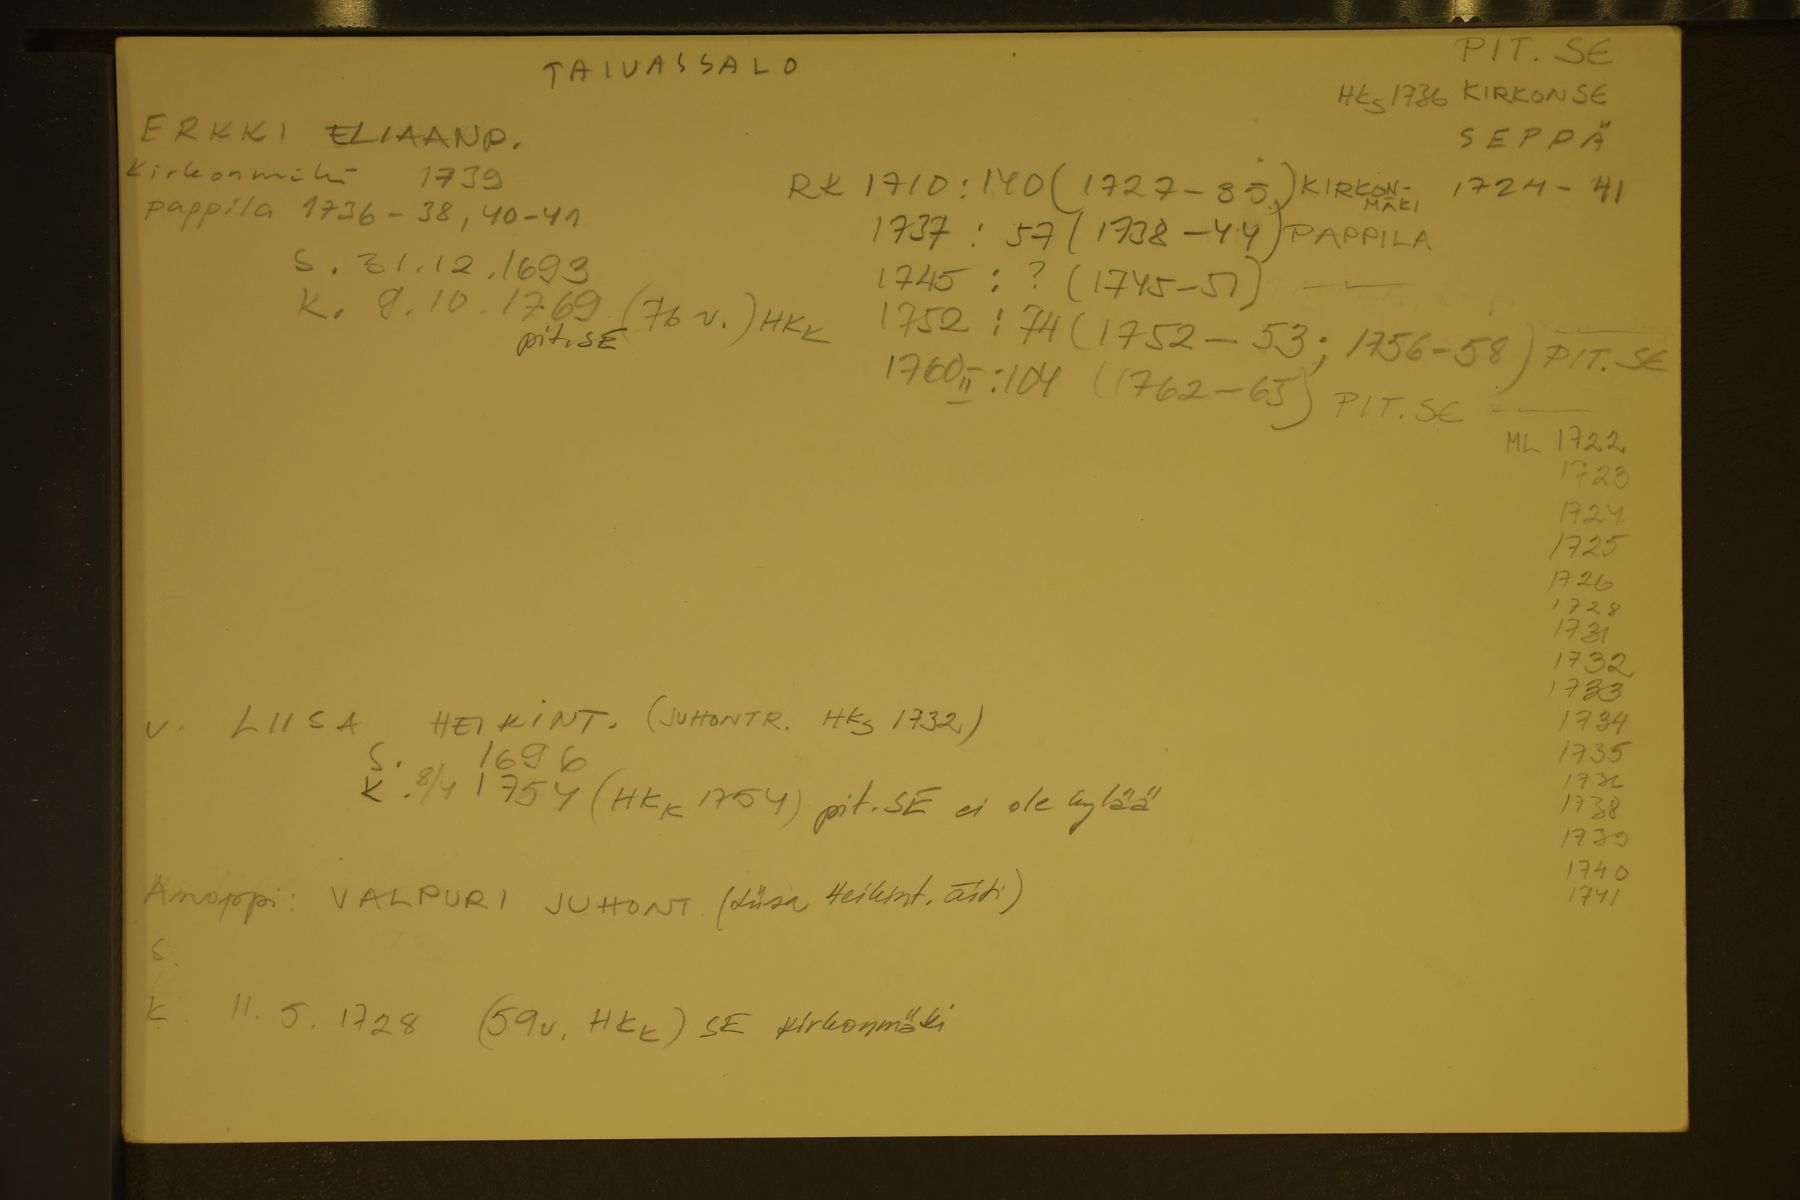 TAIVASSALO
PIT. SE
HKS 1736 KIRKONSE
SEPPÄ
ERKKI ELIAANP.
Kirkonmäki 1739
pappila 1736-38, 40-41
S. 31.12.1693
K. 9.10.1769 (76 v.) HKK
pit.SE
RK 1710:140 (1727-35) KIRKON-MÄKI 1724-41
1737: 57 (1738-44) PAPPILA
1745: ? (1745-51) —"—
1752: 74 (1752-53; 1756-58) —"— PIT.SE
1760II:104 (1762-65) PIT.SE —"—
ML 1722
1723
1724
1725
1726
1728
1731
1732
1733
1734
1735
1736
1738
1739
1740
1741
V. LIISA HEIKINT. (JUHONTR. HKS 1732)
S. 1696
K. 8/4 1754 (HKK 1754) pit.SE ei ole kylää
Anoppi: VALPURI JUHONT (Liisa Heikint. äiti)
S.
K 11.5.1728 (59v. HKK) SE Kirkonmäki